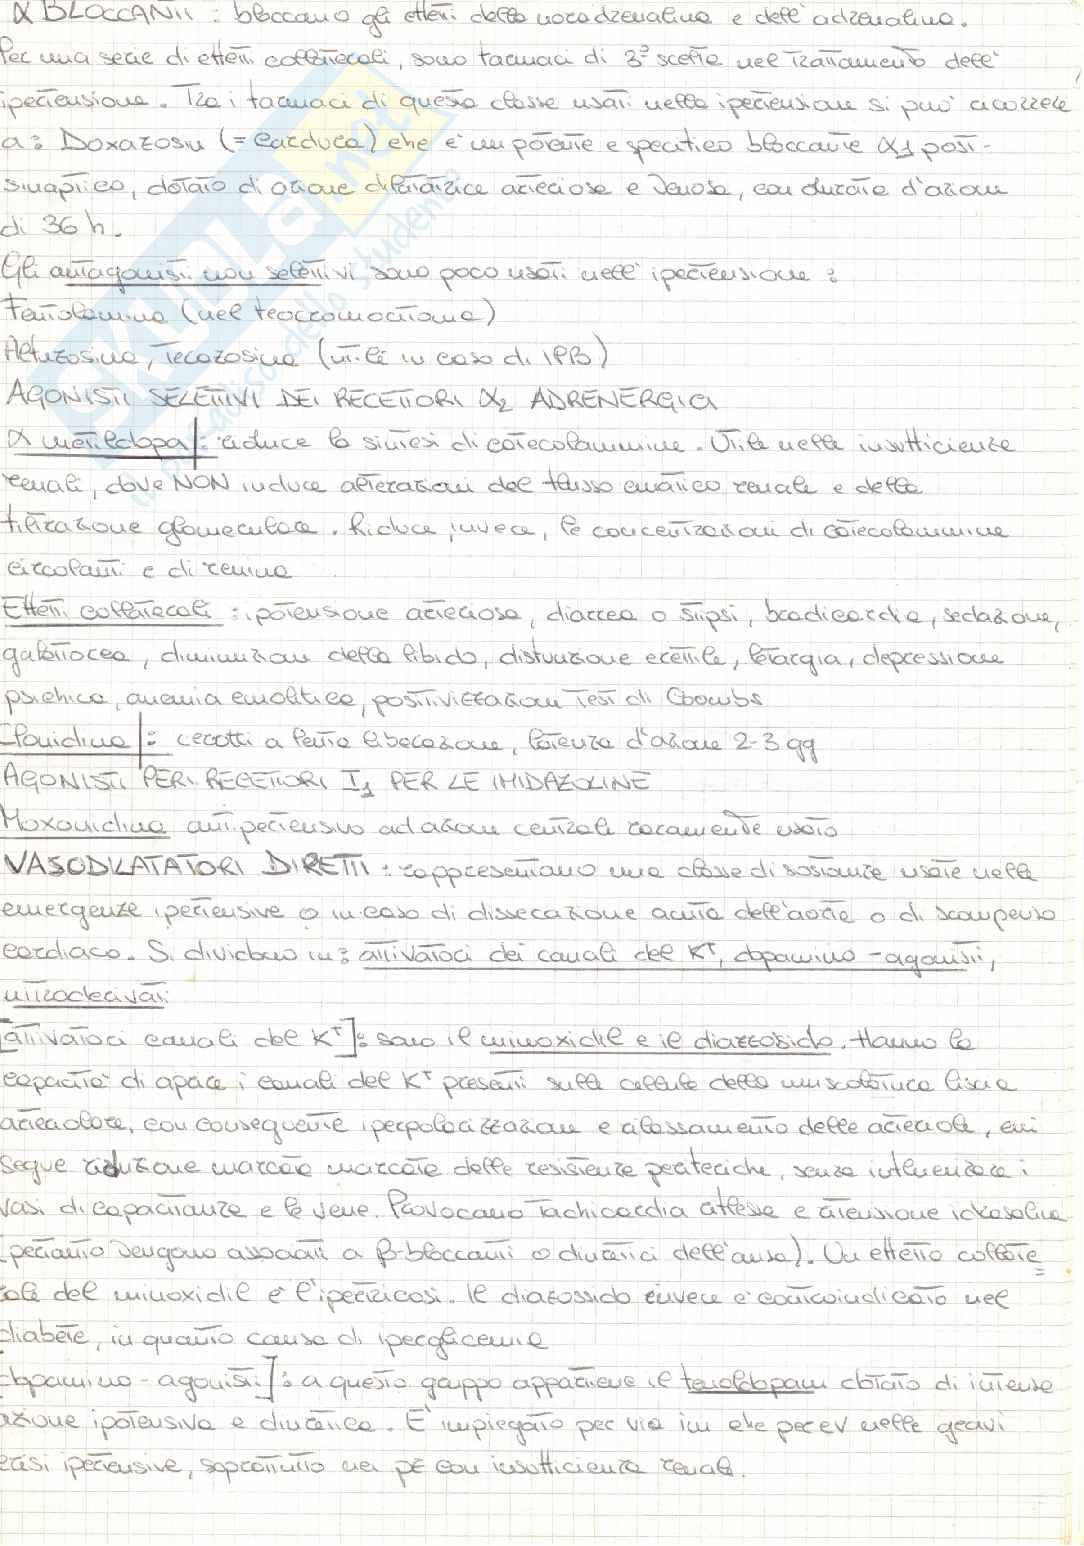 α BLOCCANTI: bloccano gli effetti della noradrenalina e dell'adrenalina.
Per una serie di effetti collaterali, sono farmaci di 3ª scelta nel trattamento dell'
ipertensione. Tra i farmaci di questa classe usati nella ipertensione si può ricorrere
a: Doxazosin (=Cardura) che è un potente e specifico bloccante α1 post-
sinaptico, dotato di azione dilatatrice arteriosa e venosa, con durata d'azione
di 36 h.
Gli antagonisti non selettivi sono poco usati nell'ipertensione:
Fentolamina (nel feocromocitoma)
Alfuzosina, Terazosina (utili in caso di IPB)
AGONISTI SELETTIVI DEI RECETTORI α2 ADRENERGICI
α metildopa: riduce la sintesi di catecolammine. Utile nella insufficienza
renali, dove NON induce alterazioni del flusso ematico renale e della
filtrazione glomerulare. Riduce, invece, le concentrazioni di catecolammine
circolanti e di renina
Effetti collaterali: ipotensione arteriosa, diarrea o stipsi, bradicardia, sedazione,
galattorea, diminuzione della libido, disfunzione erettile, letargia, depressione
psichica, anemia emolitica, positivizzazione Test di Coombs
Clonidina: cerotti a lento liberazione, latenza d'azione 2-3 gg
AGONISTI PER I RECETTORI I1 PER LE IMIDAZOLINE
Moxonidina antipertensivo ad azione centrale raramente usato
VASODILATATORI DIRETTI: rappresentano una classe di sostanze usate nelle
emergenze ipertensive o in caso di dissecazione acuta dell'aorta o di scompenso
cardiaco. Si dividono in: attivatori dei canali del K+, dopamino-agonisti,
nitroderivati
[attivatori canali del K+]: sono il minoxidil e il diazossido. Hanno la
capacità di aprire i canali del K+ presenti sulle cellule della muscolatura liscia
arteriolare, con conseguente iperpolarizzazione e rilassamento delle arteriole, cui
segue riduzione marcata marcata delle resistenze periferiche, senza influenzare i
vasi di capacitanza e le vene. Provocano tachicardia riflessa e ritensione idrosalina
(pertanto vengono associati a β-bloccanti o diuretici dell'ansa). Un effetto collate=
rale del minoxidil è l'ipertricosi. Il diazossido invece è controindicato nel
diabete, in quanto causa di iperglicemia
[dopamino-agonisti]: a questo gruppo appartiene il fenoldopam dotato di intensa
azione ipotensiva e diuretica. E' impiegato per via im che per ev nelle gravi
crisi ipertensive, soprattutto nei pz con insufficienza renale.
SKUOLA.net
il paradiso dello studente